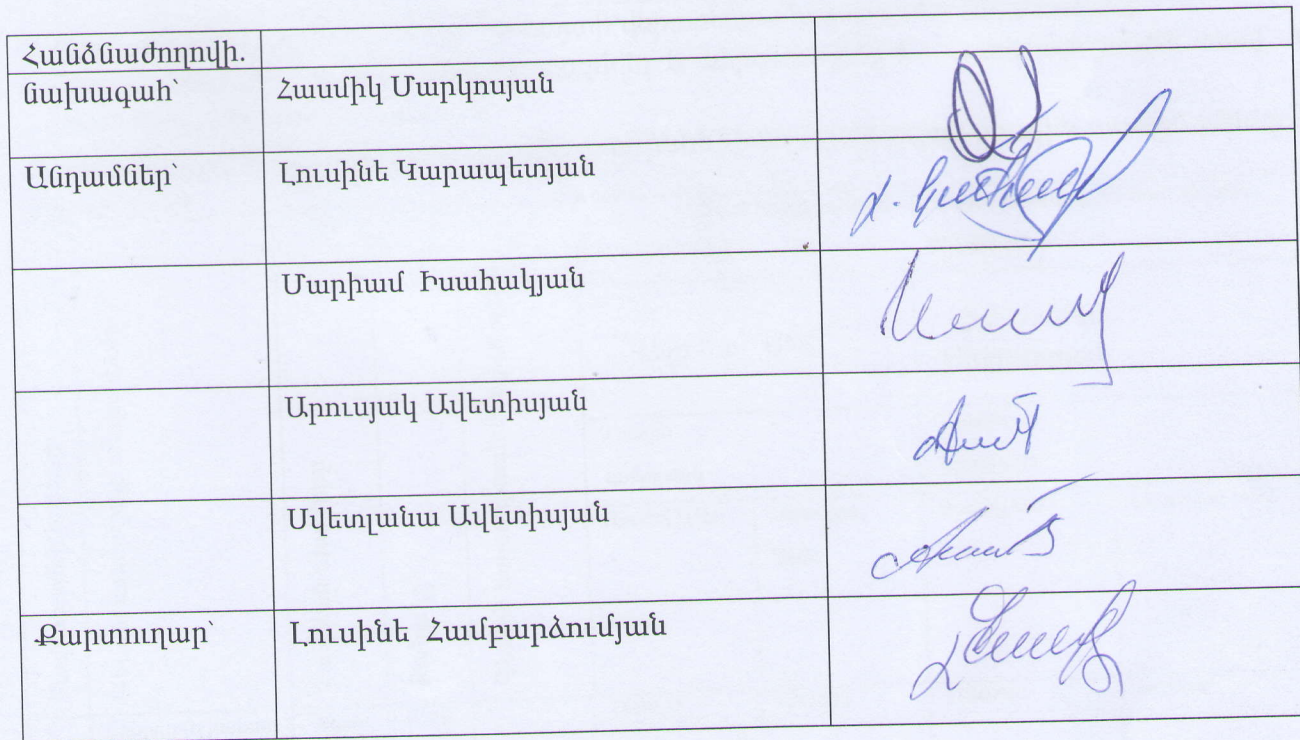 Հանձնաժողովի.
նախագահ՝ Հասմիկ Մարկոսյան
Անդամներ՝ Լուսինե Կարապետյան
Մարիամ Իսահակյան
Արուսյակ Ավետիսյան
Սվետլանա Ավետիսյան
Քարտուղար՝ Լուսինե Համբարձումյան